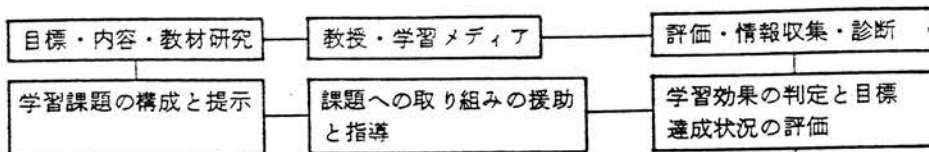 目標・内容・教材研究
教授・学習メディア
評価・情報収集・診断
学習課題の構成と提示
課題への取り組みの援助
と指導
学習効果の判定と目標
達成状況の評価